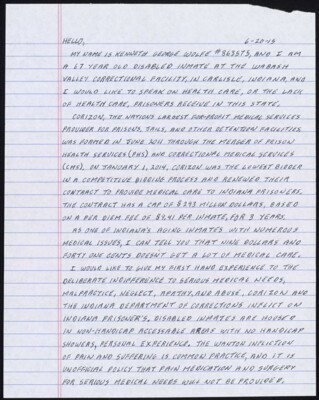 HELLO, 6-20-45
MY NAME IS KENNETH GEORGE WOLFE #863573, AND I AM
A 67 YEAR OLD DISABLED INMATE AT THE WABASH
VALLEY CORRECTIONAL FACILITY, IN CARLISLE, INDIANA, AND
I WOULD LIKE TO SPEAK ON HEALTH CARE, OR THE LACK
OF HEALTH CARE, PRISONERS RECEIVE IN THIS STATE.
CORIZON, THE NATION'S LARGEST FOR-PROFIT MEDICAL SERVICES
PROVIDER FOR PRISONS, JAILS, AND OTHER DETENTION FACILITIES
WAS FORMED IN JUNE 2011 THROUGH THE MERGER OF PRISON
HEALTH SERVICES (PHS) AND CORRECTIONAL MEDICAL SERVICES
(CMS). ON JANUARY 1, 2014, CORIZON WAS THE LOWEST BIDDER
IN A COMPETITIVE BIDDING PROCESS AND RENEWED THEIR
CONTRACT TO PROVIDE MEDICAL CARE TO INDIANA PRISONERS.
THE CONTRACT HAS A CAP OF $293 MILLON DOLLARS, BASED
ON A PER DIEM FEE OF $9.41 PER INMATE, FOR 3 YEARS.
AS ONE OF INDIANA'S AGING INMATES WITH NUMEROUS
MEDICAL ISSUES, I CAN TELL YOU THAT NINE DOLLARS AND
FORTY ONE CENTS DOESN'T GET A LOT OF MEDICAL CARE.
I WOULD LIKE TO GIVE MY FIRST HAND EXPERIENCE TO THE
DELIBERATE INDIFFERENCE TO SERIOUS MEDICAL NEEDS,
MALPRACTICE, NEGLECT, APATHY, AND ABUSE, CORIZON AND
THE INDIANA DEPARTMENT OF CORRECTIONS INFLICT ON
INDIANA PRISONER'S. DISABLED INMATES ARE HOUSED
IN NON-HANDICAP ACCESSABLE AREAS WITH NO HANDICAP
SHOWERS, PERSONAL EXPERIENCE. THE WANTON INFLICTION
OF PAIN AND SUFFERING IS COMMON PRACTICE, AND IT IS
UNOFFICIAL POLICY THAT PAIN MEDICATION AND SURGERY
FOR SERIOUS MEDICAL NEEDS WILL NOT BE PROVIDED.